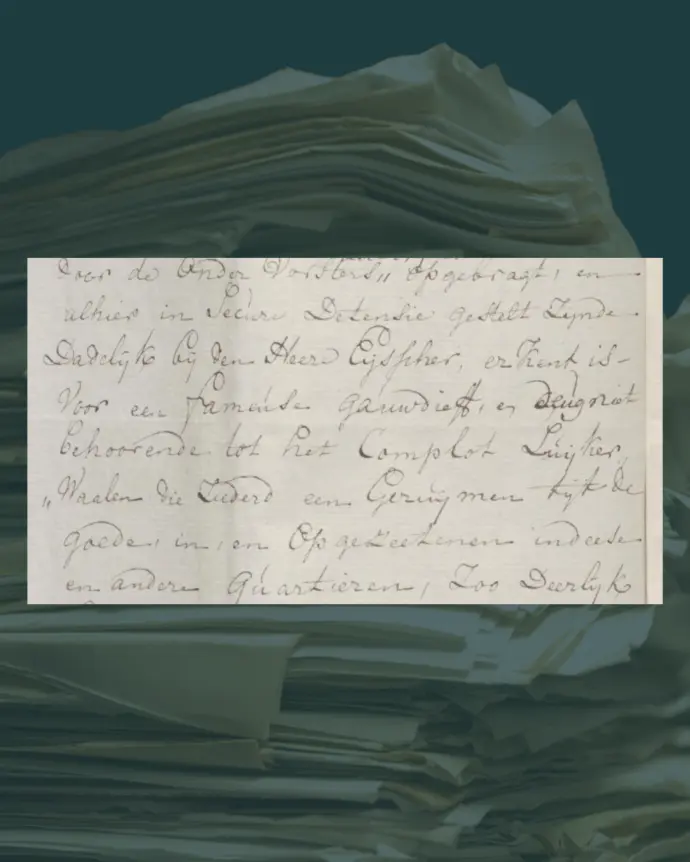 door de Onder Vorsters,, Opgebragt, en
alhier in Secure Detensie gestelt Zynde
Dadelyk by den Heere Eysscher, erkent is-
Voor een fameuse gauwdieff, en deugniet
behoorende tot het Complot Luyker,
„Waalen die Zederd een Geruymen tyt de
goede, in, en Opgezeetenen indeese
en andere Quartieren, Zoo Deerlyk